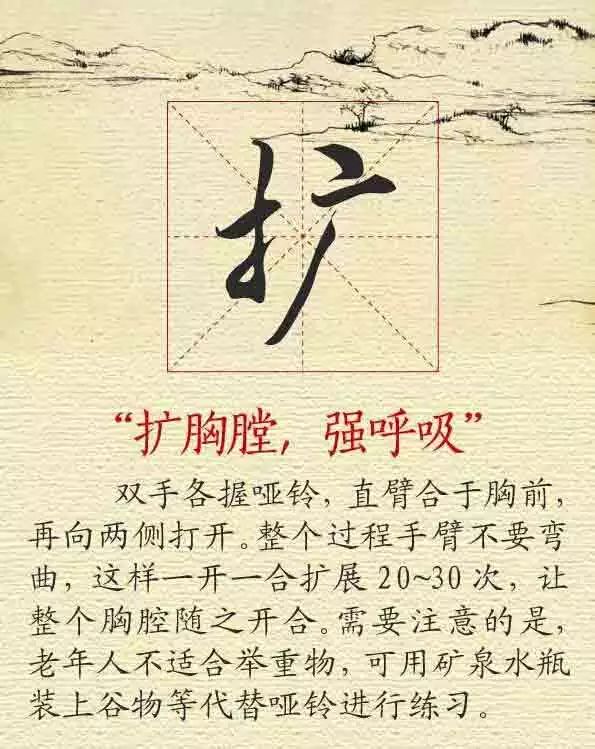 扩
“扩胸膛，强呼吸”
双手各握哑铃，直臂合于胸前，
再向两侧打开。整个过程手臂不要弯
曲，这样一开一合扩展20~30次，让
整个胸腔随之开合。需要注意的是，
老年人不适合举重物，可用矿泉水瓶
装上谷物等代替哑铃进行练习。